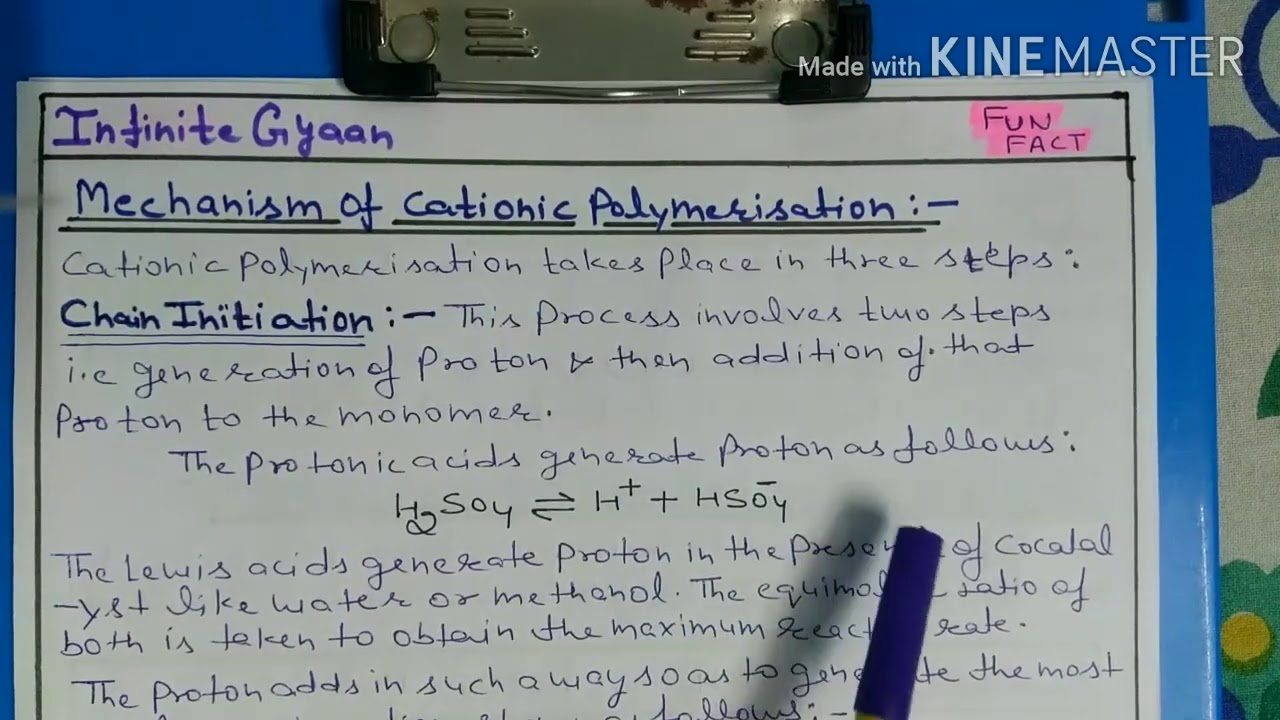 Made with KINEMASTER
Infinite Gyaan
FUN
FACT
Mechanism of Cationic Polymerisation :-
Cationic Polymerisation takes Place in three steps:
Chain Initiation :- This Process involves two steps
i.e generation of Proton & then addition of that
Proton to the monomer.
The Protonic acids generate Proton as follows:
H2SO4 ⇌ H+ + HSO4-
The Lewis acids generate Proton in the of Cocatal
-yst like water or methanol. The ratio of
both is taken to obtain the maximum rate.
The Proton adds in such a way so as to the most
follows:-